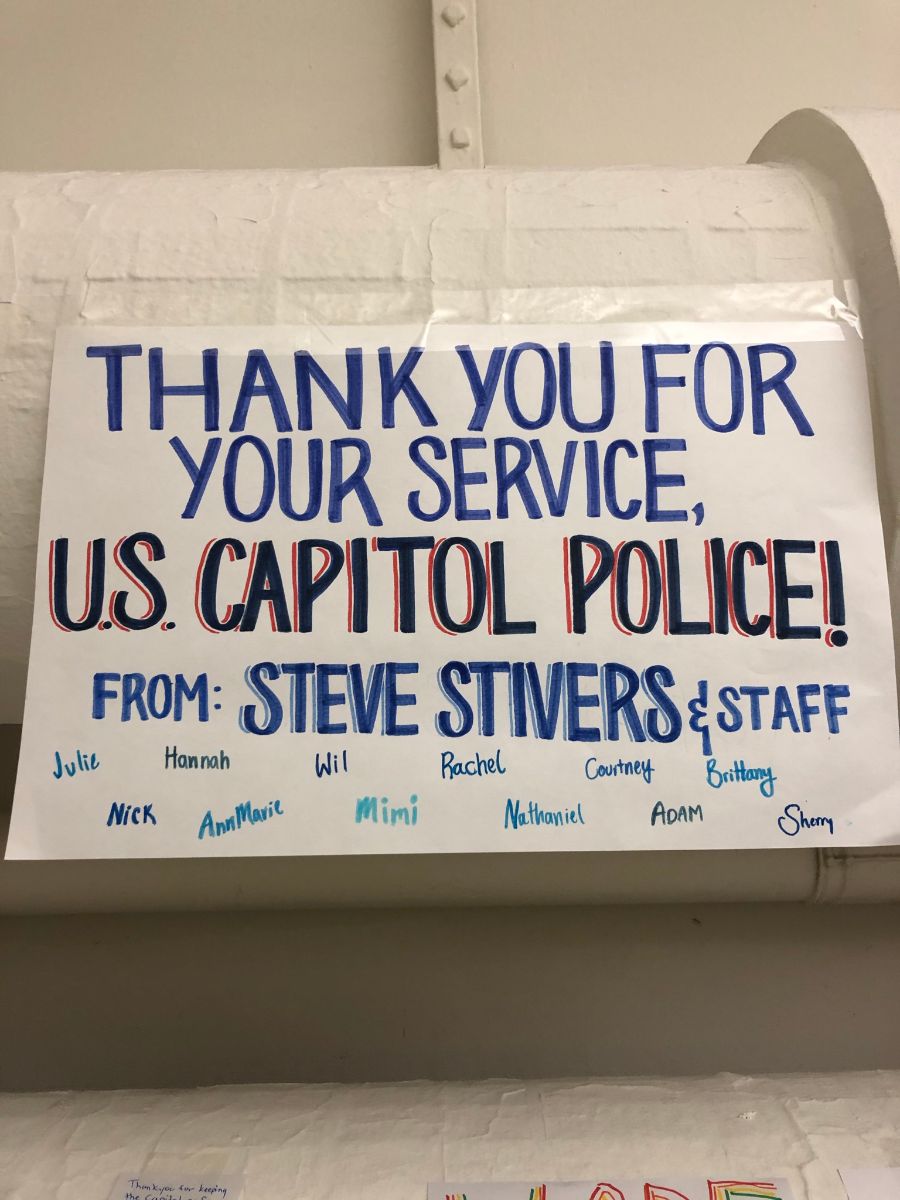 THANK YOU FOR
YOUR SERVICE,
U.S. CAPITOL POLICE!
FROM: STEVE STIVERS & STAFF
Julie Hannah Wil Rachel Courtney Brittany
Nick AnnMarie Mimi Nathaniel ADAM Sherry
Thank you for keeping
the Capitol